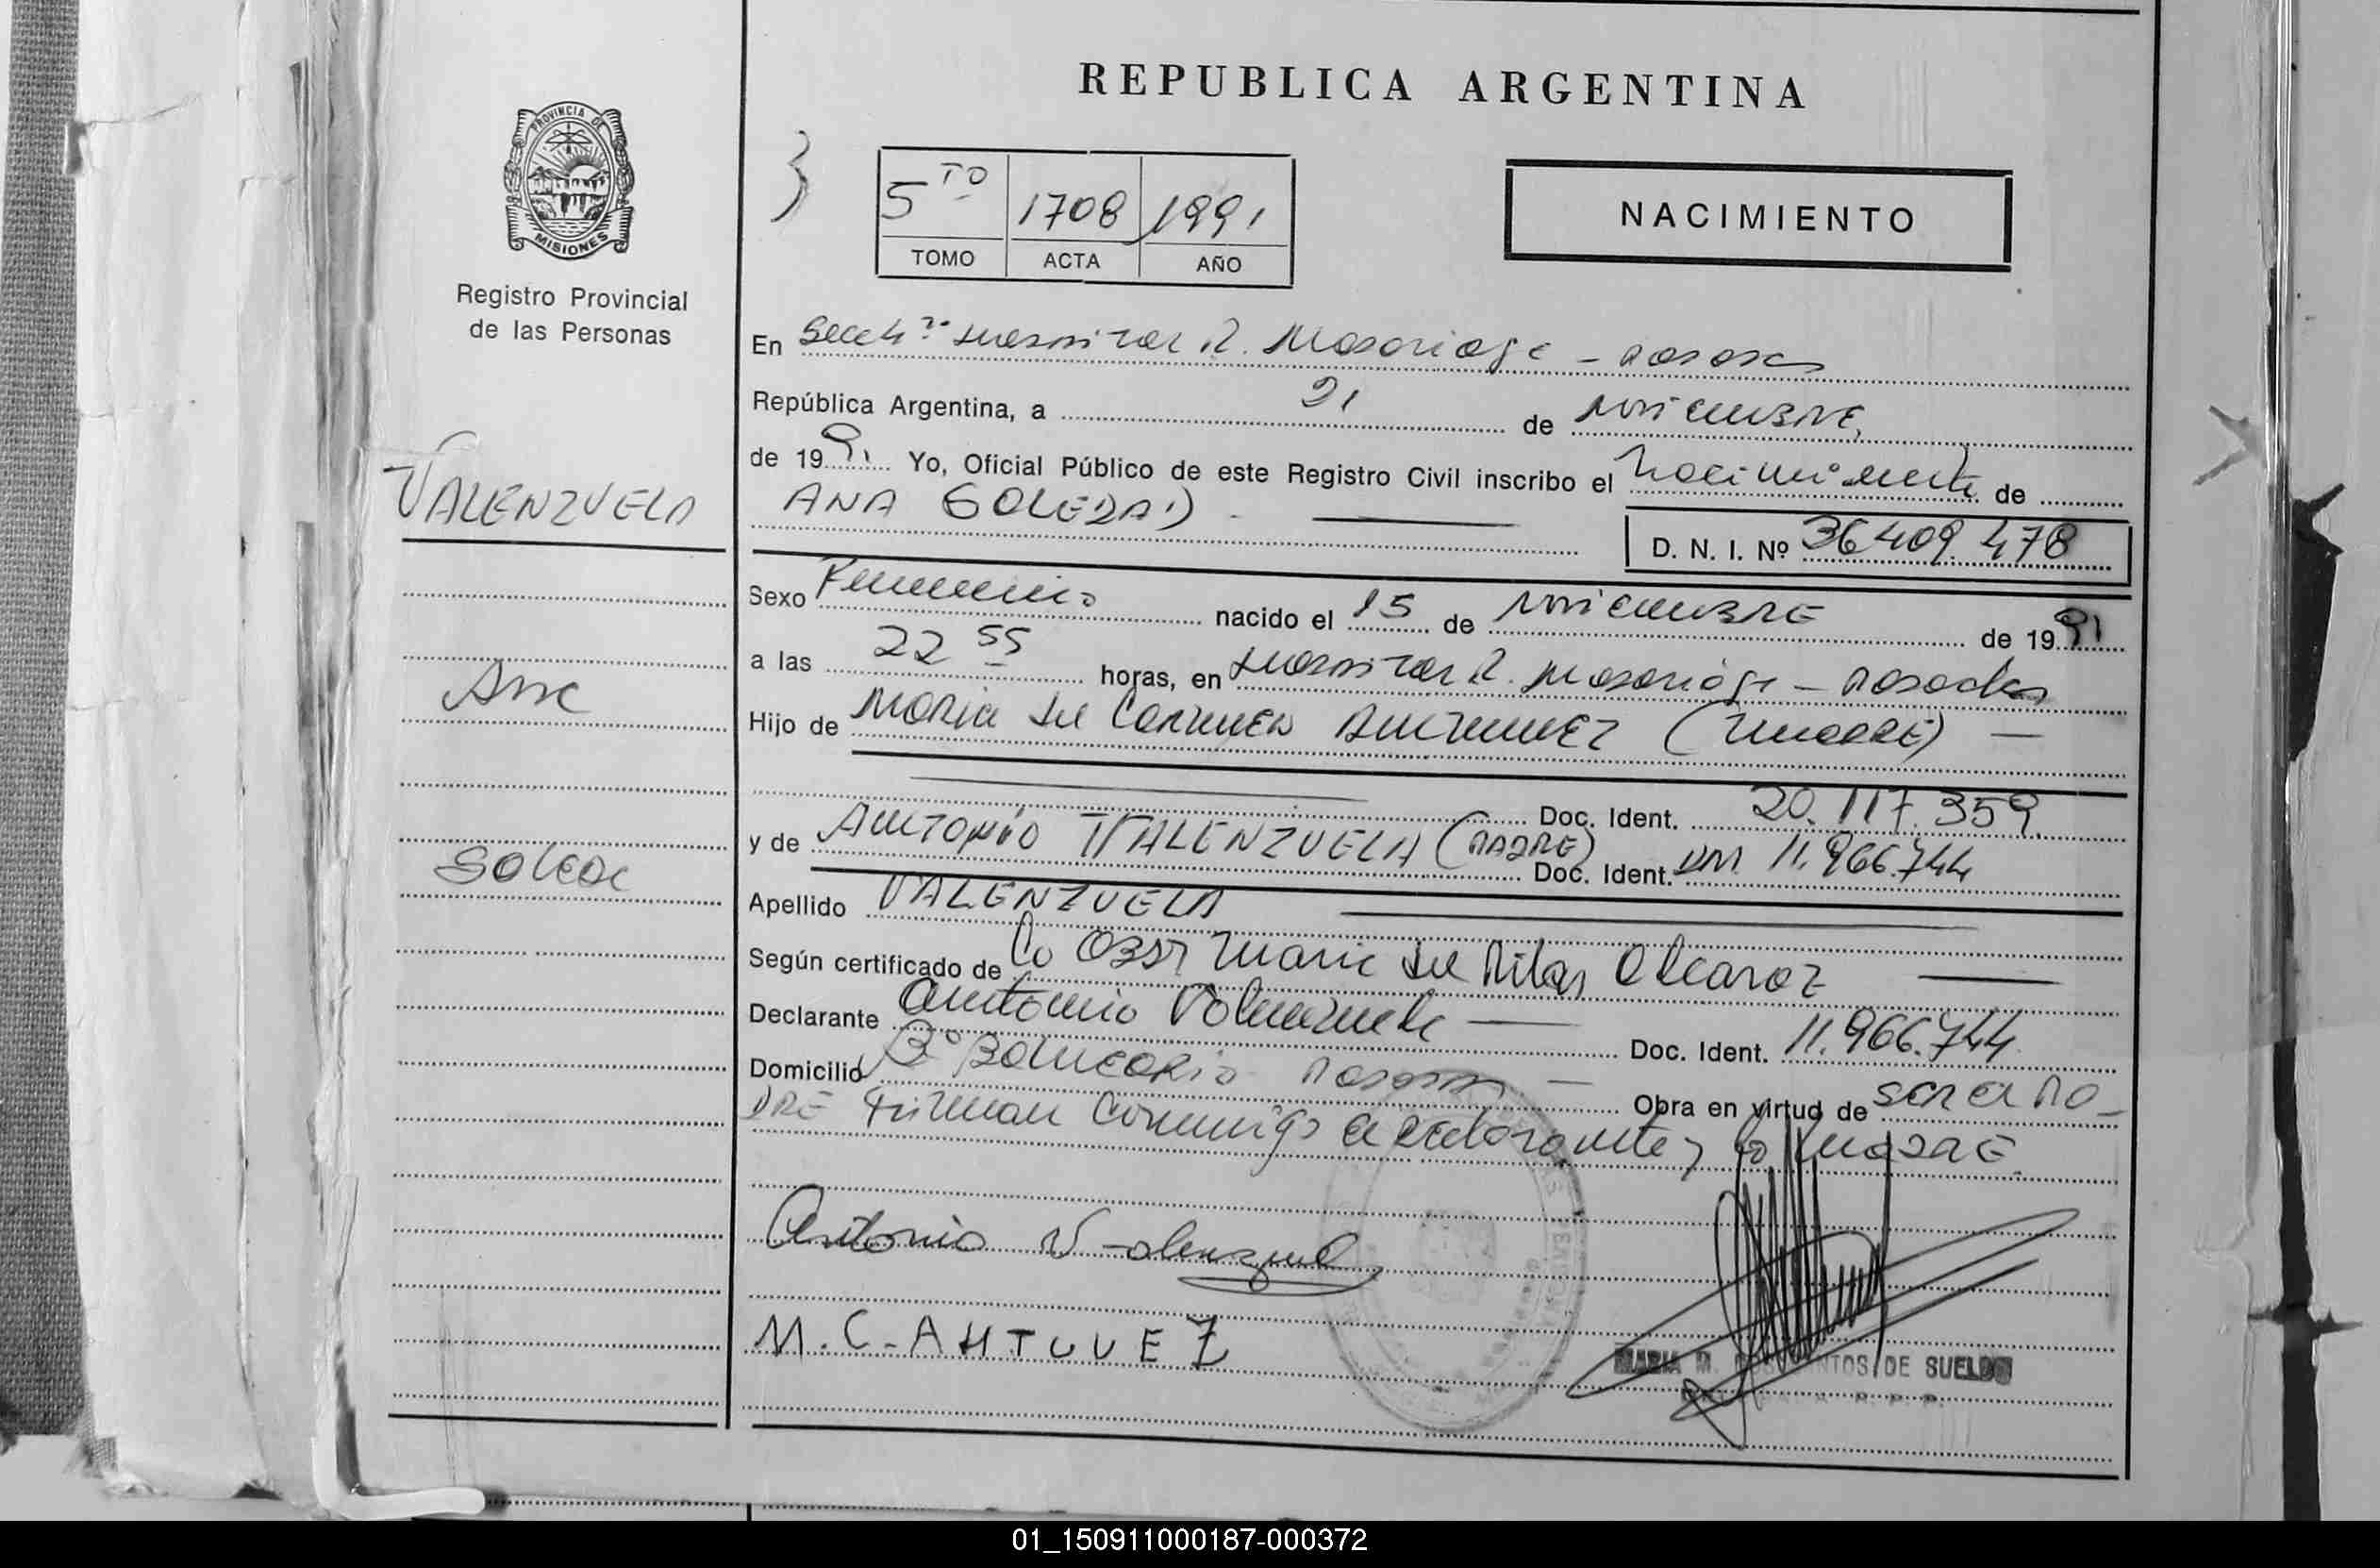 REPUBLICA ARGENTINA
PROVINCIA DE
MISIONES
Registro Provincial
de las Personas
5 TO 1708 1991
TOMO ACTA AÑO
NACIMIENTO
En R. Madariaga - Posadas
República Argentina, a 21 de Noviembre,
de 1991 Yo, Oficial Público de este Registro Civil inscribo el Nacimiento de
ANA SOLEDAD
D. N. I. Nº 36 409.478
VALENZUELA
Ana
Soledad
Sexo Femenino nacido el 15 de Noviembre de 1991
a las 22 55 horas, en Hospital R. Madariaga - Posadas
Hijo de Maria del Carmen (MADRE) -
Doc. Ident. 20.117.359
y de Antonio VALENZUELA (PADRE)
Doc. Ident. DNI 11.966.744
Apellido VALENZUELA
Según certificado de La Obst Maria del Pilar Alcaraz
Declarante Antonio Valenzuela Doc. Ident. 11.966.744
Domicilio Bº Balneario Posadas - Obra en virtud de ser el PA-
DRE Firman conmigo el declarante y la MADRE.
Antonio Valenzuel
M. C. A
MARIA DE SUELDO
01_150911000187-000372